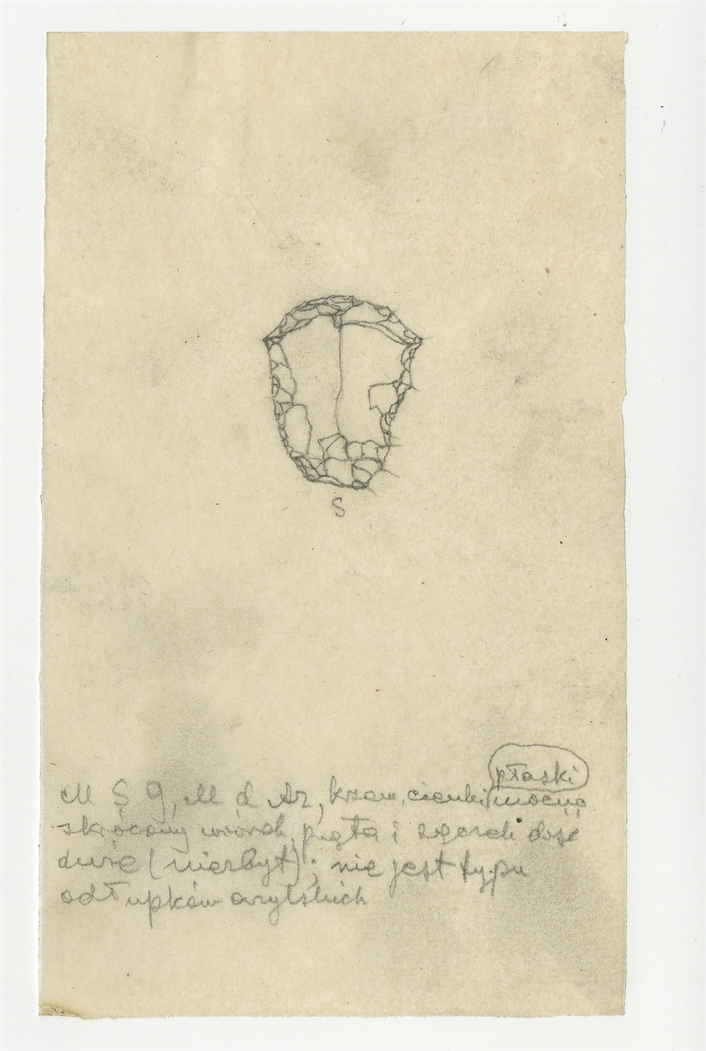 S
płaski
M S 9, M d Az, krzem. cienki mocno
skrócony wiórek, pięta i sęczek dość
duże (niezbyt); nie jest typu
odłupków azylskich